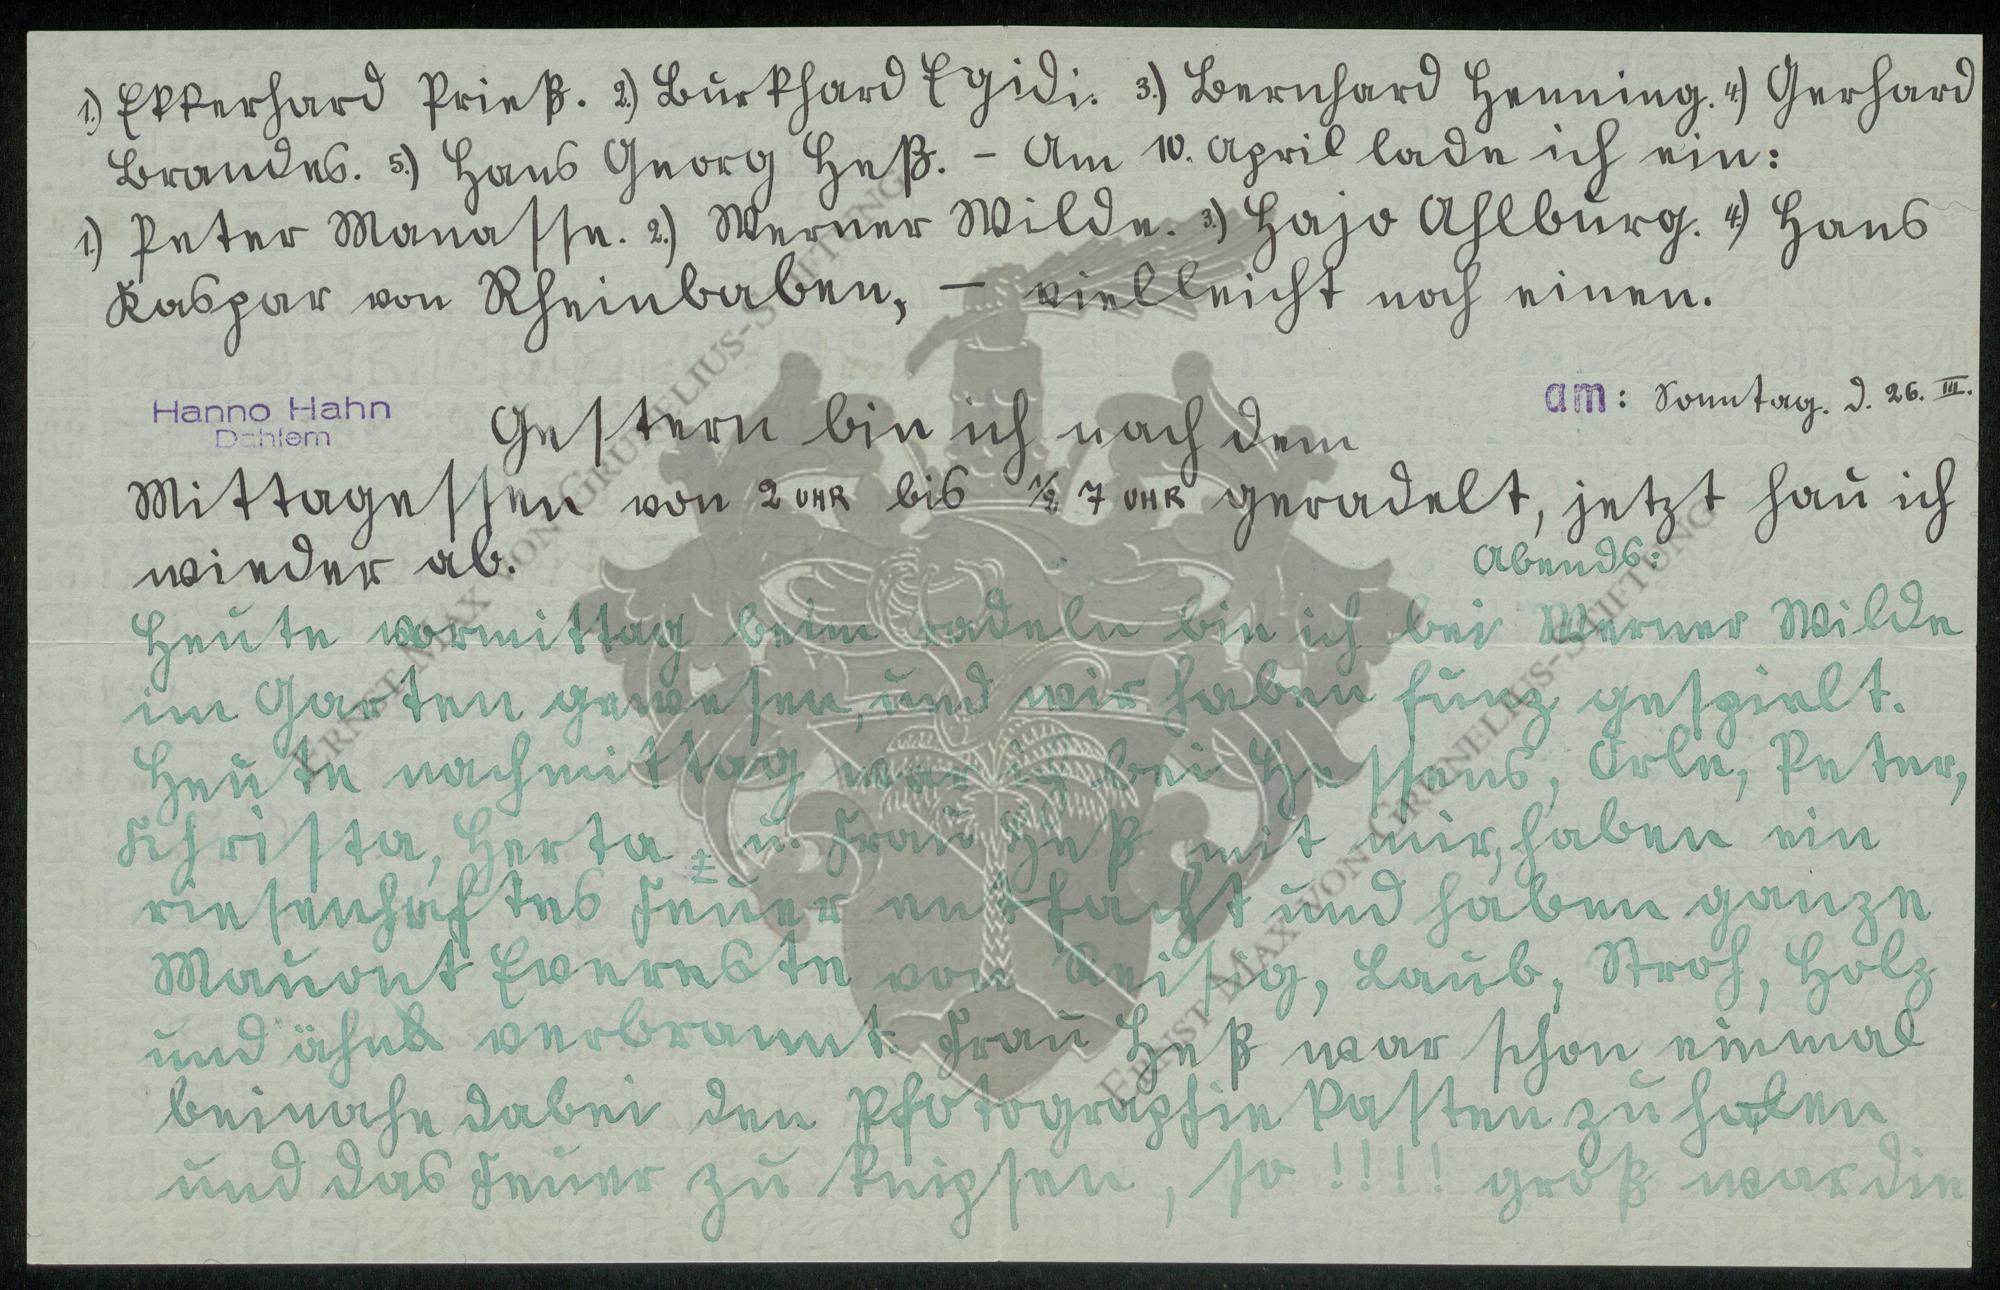 1.) Ekkerhard Prieß. 2.) Burkhard Egidi. 3.) Bernhard Henning. 4.) Gerhard
Brandes. 5.) Hans Georg Heß. – Am 10. April lade ich ein:
1.) Peter Manasse. 2.) Werner Wilde. 3.) Hajo Ahlburg. 4.) Hans
Kaspar von Rheinbaben, – vielleicht noch einen.
Hanno Hahn
Dahlem
am: Sonntag. d. 26. III.
Gestern bin ich nach dem
Mittagessen von 2 UHR bis 1/2 7 UHR geradelt, jetzt hau ich
wieder ab.
Abends:
Heute vormittag beim radeln bin ich bei Werner Wilde
im Garten gewesen, und wir haben gespielt.
Heute nachmittag war ich bei Hessens, Orle, Peter,
Christa, Herta u. Frau Heß mit mir, haben ein
riesenhaftes Feuer entfacht und haben ganze
Mauont Evereste von Reisig, Laub, Stroh, Holz
und ähnl verbrannt. Frau Heß war schon einmal
beinahe dabei den Photographiekasten zu holen
und das Feuer zu knipsen, so !!!! groß war die
ERNST MAX VON GRUNELIUS-STIFTUNG
ERNST MAX VON GRUNELIUS-STIFTUNG